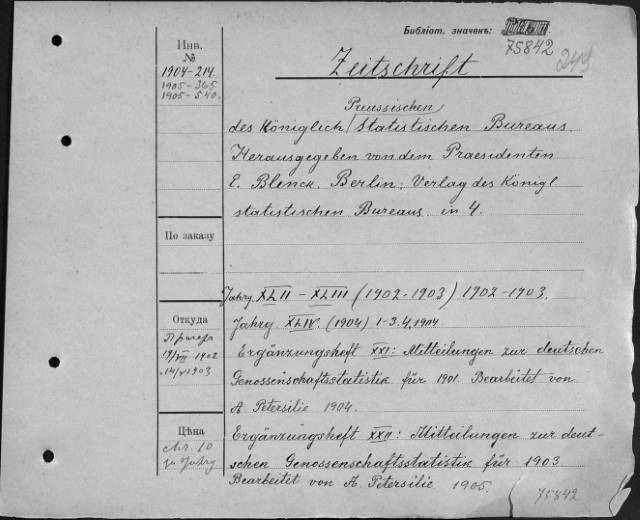 Библіот. значекъ:
75842
249
Инв.
№
1904-214.
1905-365
1905-540.
Zeitschrift
Preussischen
des Königlich / Statistischen Bureaus.
Herausgegeben von dem Praesidenten
E. Blenck. Berlin: Verlag des Königl
statistischen Bureaus. in 4.
По заказу
Jahrg. XLII - XLIII (1902-1903) 1902-1903.
Откуда
19/VII 1902
14/V 1903
Jahrg XLIV. (1904) 1-3.4, 1904
Ergänzungsheft XXI: Mitteilungen zur deutschen
Genossenschaftsstatistik für 1901. Bearbeitet von
A Petersilie 1904.
Цѣна
Mr. 10
Ergänzungsheft XXII: Mitteilungen zur deut-
schen Genossenschaftsstatistik für 1903.
Bearbeitet von A. Petersilie 1905.
75842